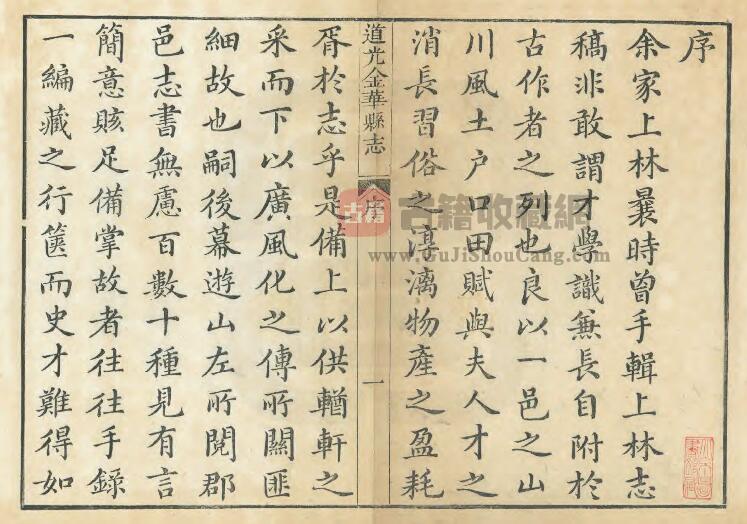 序
余家上林曩時曾手輯上林志
稿非敢謂才學識兼長自附於
古作者之列也良以一邑之山
川風土户口田賦與夫人才之
消長習俗之淳漓物產之盈耗
道光金華縣志
序
一
胥於志乎是備上以供輶軒之
采而下以廣風化之傳所關匪
細故也嗣後幕遊山左所閱郡
邑志書無慮百數十種見有言
簡意賅足備掌故者往往手錄
一編藏之行篋而史才難得如
古籍
古籍收藏網
www.GuJiShouCang.com